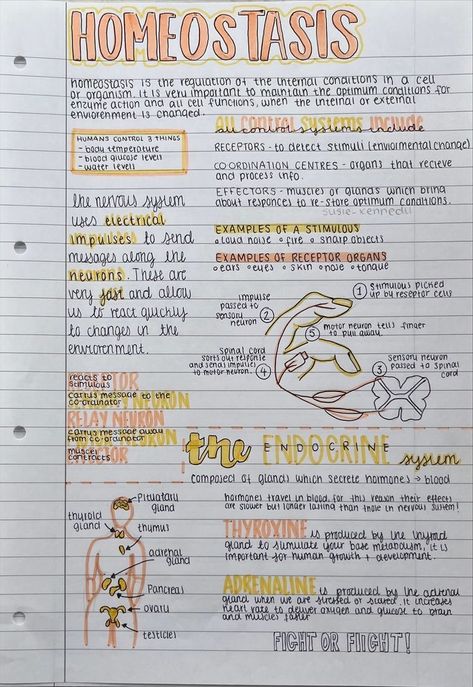 HOMEOSTASIS
homeostasis is the regulation of the internal conditions in a cell
or organism. it is very important to maintain the optimum conditions for
enzyme action and all cell functions, when the internal or external
enviorement is changed.
HUMANS CONTROL 3 THINGS
- body temperature
- blood glucose levels
- water levels
all control systems include
RECEPTORS - to detect stimuli (enviormental change)
COORDINATION CENTRES - organs that recieve
and process info.
EFFECTORS - muscles or glands which bring
about responces to re-store optimum conditions.
susie-kennedy
the nervous system
uses electrical
impulses to send
messages along the
neurons. These are
very fast and allow
us to react quickly
to changes in the
environment.
EXAMPLES OF A STIMULOUS
• loud noise • fire • sharp objects
EXAMPLES OF RECEPTOR ORGANS
• ears • eyes • skin • nose • tongue
① Stimulous picked
up by reseptor cells
impulse
passed to
sensory
neuron ②
⑤ motor neuron tells finger
to pull away.
spinal cord
sorts out response
and sends impulses
to motor neuron.
④
③ sensory neuron
passed to spinal
cord
reacts to
stimulous
carrys message to the
co-ordinator
RELAY NEURON
carrys message away
from co-ordinator
muscel
contracts
the ENDOCRINE system
composed of glands which secrete hormones → blood
pituitary
gland
thyroid
gland
thymus
adrenal
gland
pancreas
ovary
testicles
hormones travel in blood, for this reason their effects
are slower but longer lasting than those in nervous system!
THYROXINE is produced by the thyroid
gland to stimulate your base metabolism, it is
important for human growth + development.
ADRENALINE is produced by the adrenal
gland when we are stressed or scared. it increases
heart rate to deliver oxygen and glucose to brain
and muscles faster
FIGHT OR FLIGHT!